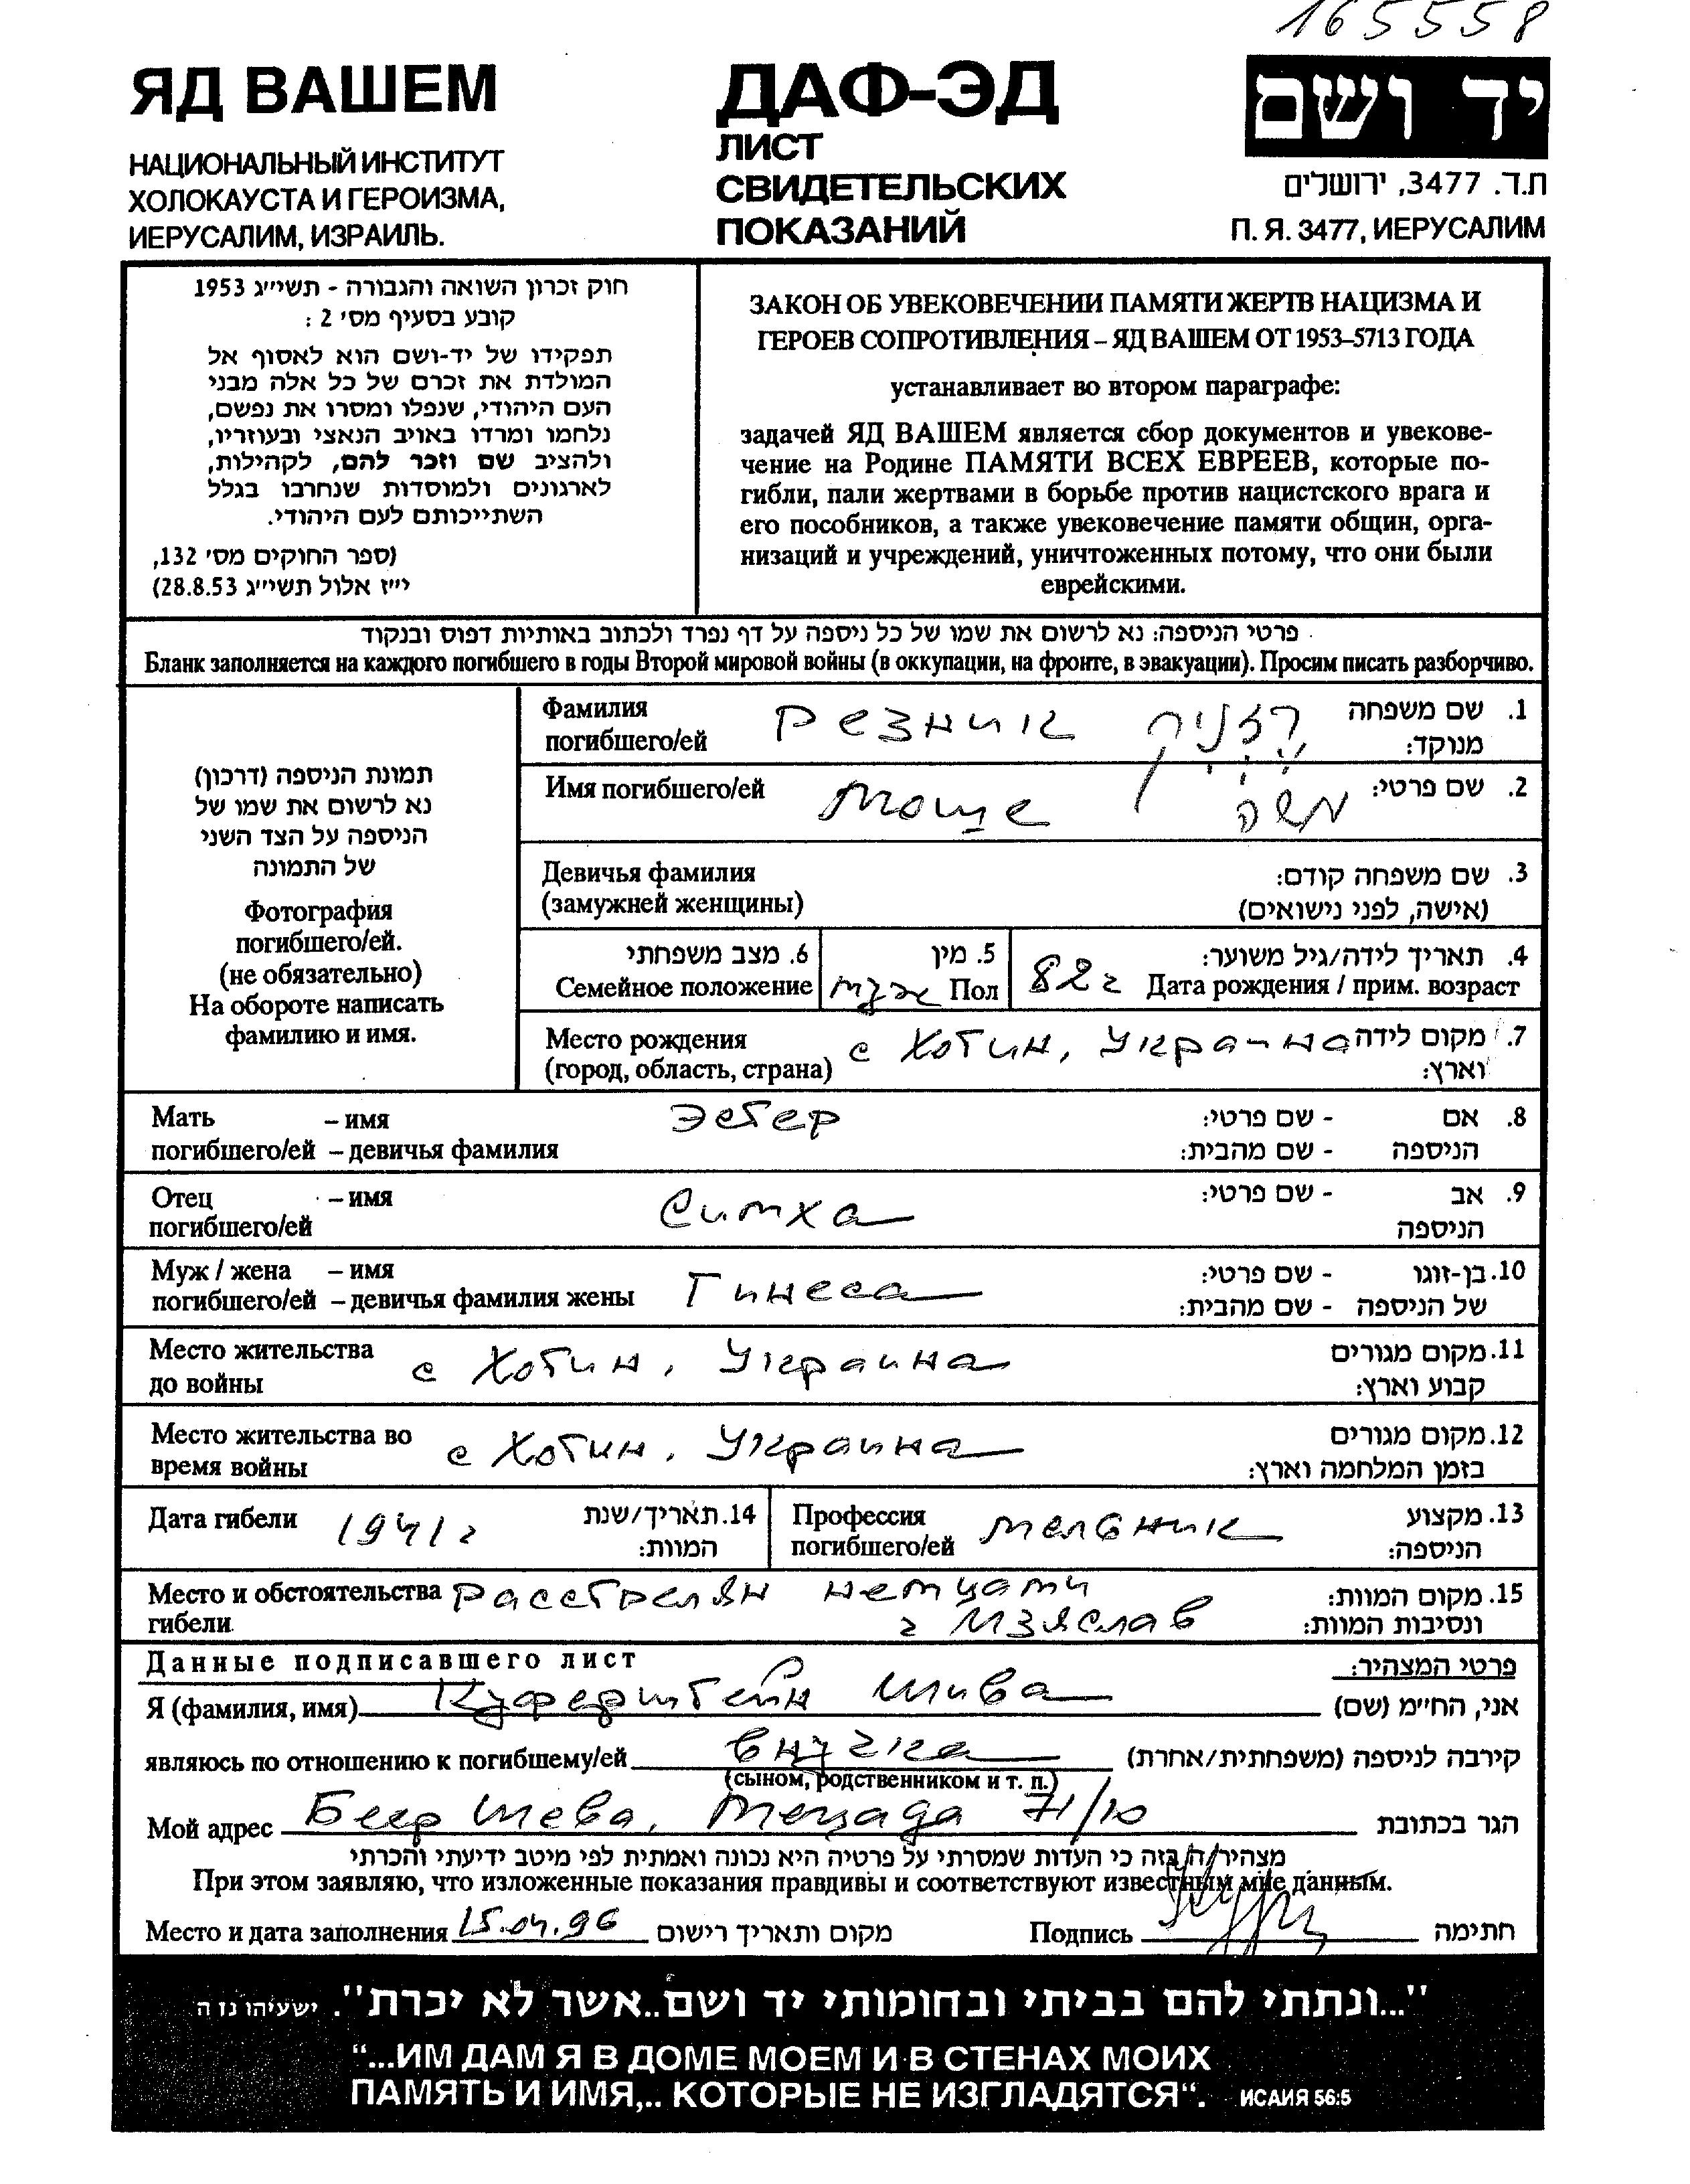 165558
ЯД ВАШЕМ
НАЦИОНАЛЬНЫЙ ИНСТИТУТ
ХОЛОКАУСТА И ГЕРОИЗМА,
ИЕРУСАЛИМ, ИЗРАИЛЬ.
ДАФ-ЭД
ЛИСТ
СВИДЕТЕЛЬСКИХ
ПОКАЗАНИЙ
יד ושם
ת.ד. 3477, ירושלים
П. Я. 3477, ИЕРУСАЛИМ
חוק זכרון השואה והגבורה - תשי״ג 1953
קובע בסעיף מס׳ 2 :
תפקידו של יד-ושם הוא לאסוף אל
המולדת את זכרם של כל אלה מבני
העם היהודי, שנפלו ומסרו את נפשם,
נלחמו ומרדו באויב הנאצי ובעוזריו,
ולהציב שם וזכר להם, לקהילות,
לארגונים ולמוסדות שנחרבו בגלל
השתייכותם לעם היהודי.
(ספר החוקים מס׳ 132,
י״ז אלול תשי״ג 28.8.53)
ЗАКОН ОБ УВЕКОВЕЧЕНИИ ПАМЯТИ ЖЕРТВ НАЦИЗМА И
ГЕРОЕВ СОПРОТИВЛЕНИЯ – ЯД ВАШЕМ ОТ 1953–5713 ГОДА
устанавливает во втором параграфе:
задачей ЯД ВАШЕМ является сбор документов и увекове-
чение на Родине ПАМЯТИ ВСЕХ ЕВРЕЕВ, которые по-
гибли, пали жертвами в борьбе против нацистского врага и
его пособников, а также увековечение памяти общин, орга-
низаций и учреждений, уничтоженных потому, что они были
еврейскими.
פרטי הניספה: נא לרשום את שמו של כל ניספה על דף נפרד ולכתוב באותיות דפוס ובנקוד
Бланк заполняется на каждого погибшего в годы Второй мировой войны (в оккупации, на фронте, в эвакуации). Просим писать разборчиво.
תמונת הניספה (דרכון)
נא לרשום את שמו של
הניספה על הצד השני
של התמונה
Фотография
погибшего/ей.
(не обязательно)
На обороте написать
фамилию и имя.
Фамилия погибшего/ей Резник רזניק 1. שם משפחה מנוקד:
Имя погибшего/ей Моше משה 2. שם פרטי:
Девичья фамилия 3. שם משפחה קודם:
(замужней женщины) (אישה, לפני נישואים)
6. מצב משפחתי 5. מין 4. תאריך לידה/גיל משוער:
Семейное положение муж Пол 82 г Дата рождения / прим. возраст
Место рождения с Хотин, Украина 7. מקום לידה
(город, область, страна) וארץ:
Мать – имя Эстер 8. אם - שם פרטי:
погибшего/ей – девичья фамилия הניספה - שם מהבית:
Отец – имя Симха 9. אב - שם פרטי:
погибшего/ей הניספה
Муж / жена – имя Гинеса 10. בן-זוגו - שם פרטי:
погибшего/ей – девичья фамилия жены של הניספה - שם מהבית:
Место жительства с Хотин, Украина 11. מקום מגורים
до войны קבוע וארץ:
Место жительства во с Хотин, Украина 12. מקום מגורים
время войны בזמן המלחמה וארץ:
Дата гибели 1941 г 14. תאריך/שנת המוות:
Профессия погибшего/ей мельник 13. מקצוע הניספה:
Место и обстоятельства расстрелян немцами 15. מקום המוות:
гибели г Изяслав ונסיבות המוות:
Данные подписавшего лист פרטי המצהיר:
Я (фамилия, имя) Куферштейн Шива אני, הח״מ (שם)
являюсь по отношению к погибшему/ей внучка קירבה לניספה (משפחתית/אחרת)
(сыном, родственником и т. п.)
Мой адрес Беер Шева, Мецада 71/10 הגר בכתובת
מצהיר/ה בזה כי העדות שמסרתי על פרטיה היא נכונה ואמתית לפי מיטב ידיעתי והכרתי
При этом заявляю, что изложенные показания правдивы и соответствуют известным мне данным.
Место и дата заполнения 15.04.96 מקום ותאריך רישום Подпись חתימה
"...ונתתי להם בביתי ובחומותי יד ושם..אשר לא יכרת". ישעיהו נו ה
“...ИМ ДАМ Я В ДОМЕ МОЕМ И В СТЕНАХ МОИХ
ПАМЯТЬ И ИМЯ,.. КОТОРЫЕ НЕ ИЗГЛАДЯТСЯ“. ИСАИЯ 56:5